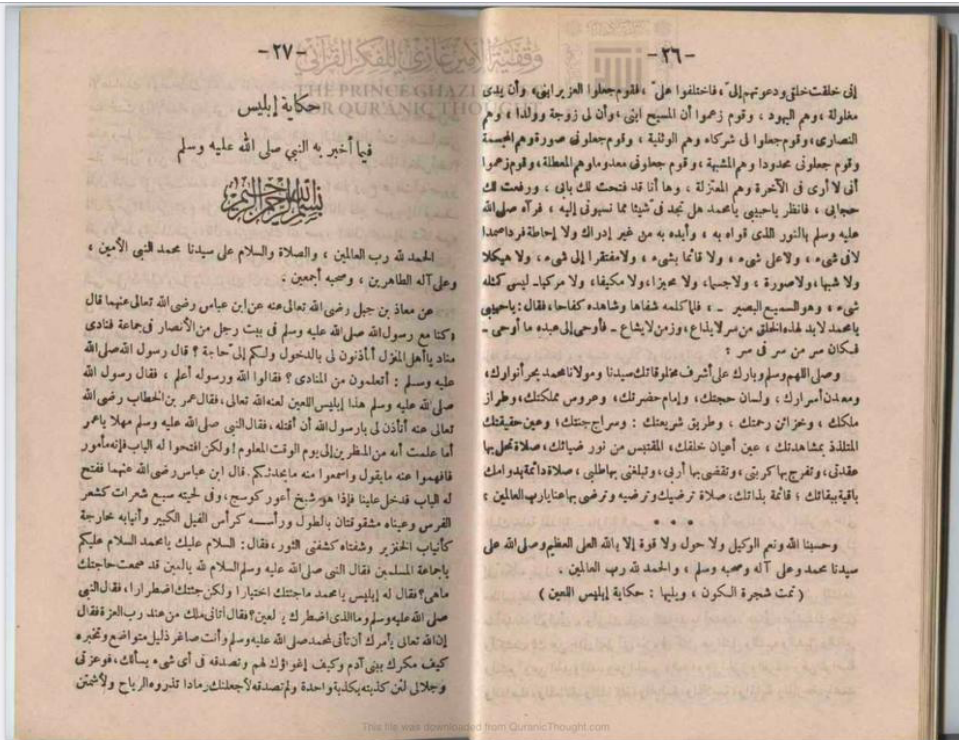 -٢٦-
إنى خلقت خلقى ودعوتهم إلىّ ، فاختلفوا علىّ ، فقوم جعلوا العزير ابنى ، وأن يدى
مغلولة ، وهم اليهود ، وقوم زعموا أن المسيح ابنى ، وأن لى زوجة وولدا ، وهم
النصارى ، وقوم جعلوا لى شركاء وهم الوثنية ، وقوم جعلونى صورة وهم المجسمة
وقوم جعلونى محدودا وهم المشبهة ، وقوم جعلونى معدوما وهم المعطلة ، وقوم زعموا
أنى لا أرى فى الآخرة وهم المعتزلة ، وها أنا قد فتحت لك بابى ، ورفعت لك
حجابى ، فانظر ياحبيبى يامحمد هل تجد فىّ شيئا مما نسبونى إليه ، فرآه صلى الله
عليه وسلم بالنور الذى قواه به ، وأيده به من غير إدراك ولا إحاطة فردا صمدا
لا فى شىء ، ولا على شىء ، ولا قائما بشىء ، ولا مفتقرا إلى شىء ، ولا هيكلا
ولا شبها ولا صورة ، ولا جسما ، ولا محيزا ، ولا مكيفا ، ولا مركبا . ليس كمثله
شىء ، وهو السميع البصير - ، فلما كلمه شفاها وشاهده كفاحا ، فقال : ياحبيبى
يامحمد لابد لهذه الخلق من سر لايذاع ، وزمن لايشاع - فأوحى إلى عبده ما أوحى -
فكان سر من سر فى سر :
وصلى اللهم وسلم وبارك على أشرف مخلوقاتك سيدنا ومولانا محمد بحر أنوارك ،
ومعدن أسرارك ، ولسان حجتك ، وإمام حضرتك ، وعروس مملكتك ، وطراز
ملكك ، وخزائن رحمتك ، وطريق شريعتك : وسراج جنتك ؛ وعين حقيقتك
المتلذذ بمشاهدتك ، عين أعيان خلقك ، المقتبس من نور ضيائك ، صلاة تحل بها
عقدتى ، وتفرج بها كربتى ، وتقضى بها أربى ، وتبلغنى بها طلبى ، صلاة دائمة بدوامك
باقية ببقائك ؛ قائمة بذاتك ، صلاة ترضيك وترضيه وترضى بها عنا يارب العالمين ؛
* * *
وحسبنا الله ونعم الوكيل ولا حول ولا قوة إلا بالله العلى العظيم وصلى الله على
سيدنا محمد وعلى آله وصحبه وسلم ، والحمد لله رب العالمين .
( تمت شجرة الكون ، ويليها : حكاية إبليس اللعين )
-٢٧-
وقفية الأمير غازي للفكر القرآني
THE PRINCE GHAZI
FOR QURANIC THOUGHT
حكاية إبليس
فيما أخبر به النبي صلى الله عليه وسلم
بسم الله الرحمن الرحيم
الحمد لله رب العالمين ، والصلاة والسلام على سيدنا محمد النبى الأمين ،
وعلى آله الطاهرين ، وصحبه أجمعين .
عن معاذ بن جبل رضى الله تعالى عنه عن ابن عباس رضى الله تعالى عنهما قال
وكنا مع رسول الله صلى الله عليه وسلم فى بيت رجل من الأنصار فى جماعة فنادى
مناد ياأهل المنزل أتأذنون لى بالدخول ولكم إلىّ حاجة ؟ قال رسول الله صلى الله
عليه وسلم : أتعلمون من المنادى ؟ فقالوا الله ورسوله أعلم ، فقال رسول الله
صلى الله عليه وسلم هذا إبليس اللعين لعنه الله تعالى ، فقال عمر بن الخطاب رضى الله
تعالى عنه أتأذن لى يارسول الله أن أقتله ، فقال النبى صلى الله عليه وسلم مهلا ياعمر
أما علمت أنه من المنظرين إلى يوم الوقت المعلوم ! ولكن افتحوا له الباب فإنه مأمور
فافهموا عنه مايقول واسمعوا منه مايحدثكم . قال ابن عباس رضى الله عنهما ففتح
له الباب فدخل علينا فإذا هو شيخ أعور كوسج ، وفى لحيته سبع شعرات كشعر
الفرس وعيناه مشقوقتان بالطول ورأسه كرأس الفيل الكبير وأنيابه خارجة
كأنياب الخنزير وشفتاه كشفتى الثور ، فقال : السلام عليك يامحمد السلام عليكم
ياجماعة المسلمين فقال النبى صلى الله عليه وسلم السلام لله يالعين قد سمعت حاجتك
ماهى ؟ فقال له إبليس يامحمد ماجئتك اختيارا ولكن جئتك اضطرارا ، فقال النبى
صلى الله عليه وسلم وما الذى اضطرك يالعين ؟ فقال أتانى ملك من عند رب العزة فقال
إن الله تعالى يأمرك أن تأتى لمحمد صلى الله عليه وسلم وأنت صاغر ذليل متواضع وتخبره
كيف مكرك ببنى آدم وكيف إغواؤك لهم وتصدقه فى أى شىء يسألك ، فوعزتى
وجلالى لئن كذبته بكذبة واحدة ولم تصدقه لأجعلنك رمادا تذروه الرياح ولأشمتن
This file was downloaded from QuranicThought.com